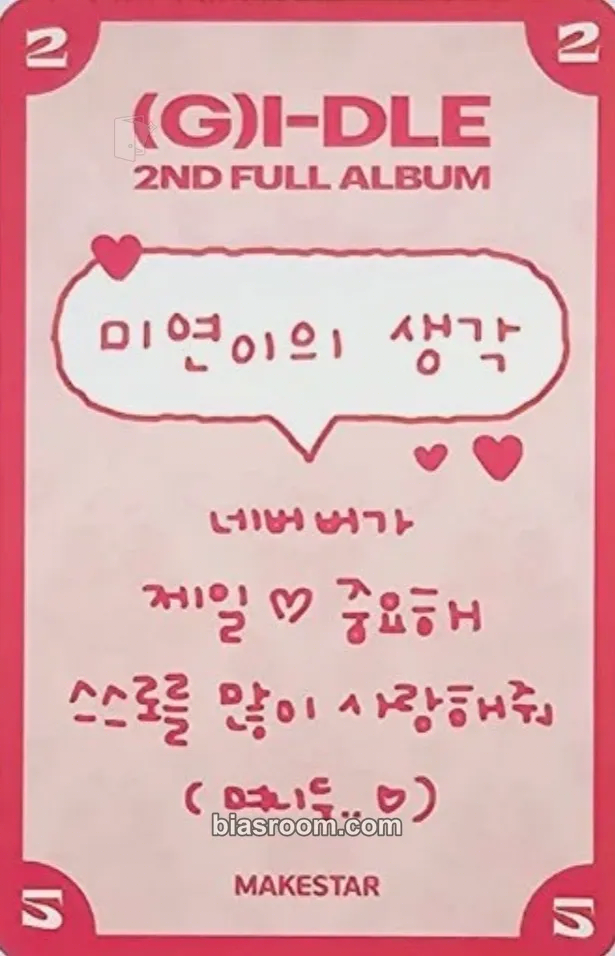 2 2
(G)I-DLE
2ND FULL ALBUM
미연이의 생각
네버버가
제일 ♡ 중요해
스스로를 많이 사랑해줘
( 며니두.. ♡)
biasroom.com
MAKESTAR
2 2